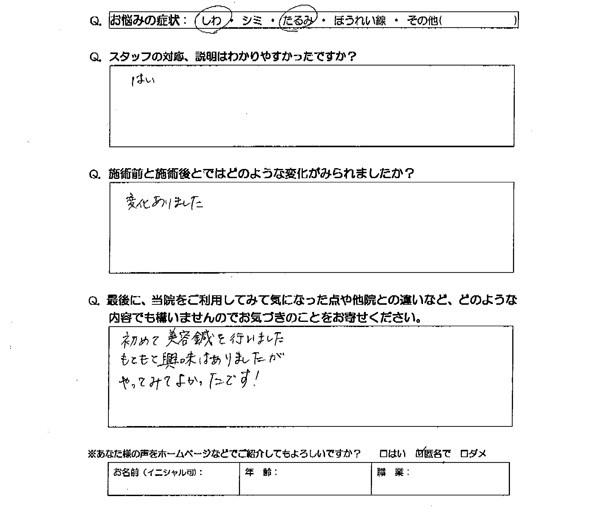 Q. お悩みの症状：しわ・シミ・たるみ・ほうれい線・その他(　　　　)
Q. スタッフの対応、説明はわかりやすかったですか？
はい
Q. 施術前と施術後とではどのような変化がみられましたか？
変化ありました
Q. 最後に、当院をご利用してみて気になった点や他院との違いなど、どのような
内容でも構いませんのでお気づきのことをお寄せください。
初めて美容鍼を行いました
もともと興味はありましたが
やってみてよかったです！
※あなた様の声をホームページなどでご紹介してもよろしいですか？　□はい　☑匿名で　□ダメ
お名前（イニシャル可）：　年齢：　職業：